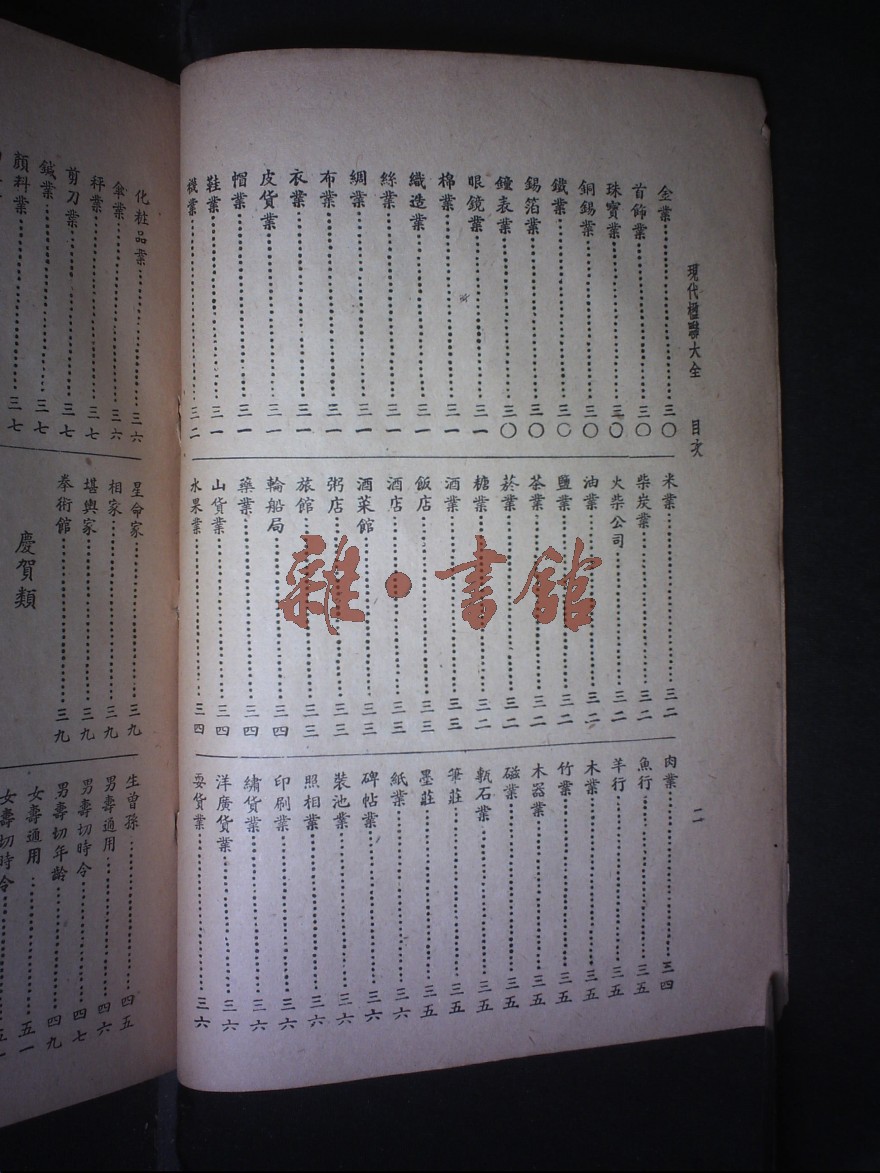 現代楹聯大全 目次 二
金業……三〇
首飾業……三〇
珠寶業……三〇
銅錫業……三〇
鐵業……三〇
錫箔業……三〇
鐘表業……三〇
眼鏡業……三一
棉業……三一
織造業……三一
絲業……三一
綢業……三一
布業……三一
衣業……三一
皮貨業……三一
帽業……三一
鞋業……三一
襪業……三二
米業……三二
柴炭業……三二
火柴公司……三二
油業……三二
鹽業……三二
茶業……三二
菸業……三二
糖業……三二
酒業……三三
飯店……三三
酒店……三三
酒菜館……三三
粥店……三三
旅館……三三
輪船局……三四
藥業……三四
山貨業……三四
水果業……三四
肉業……三四
魚行……三五
羊行……三五
木業……三五
竹業……三五
木器業……三五
磁業……三五
甎石業……三五
筆莊……三五
墨莊……三五
紙業……三六
碑帖業……三六
裝池業……三六
照相業……三六
印刷業……三六
繡貨業……三六
洋廣貨業……三六
耍貨業……三六
化粧品業……三六
傘業……三六
秤業……三七
剪刀業……三七
鍼業……三七
顏料業……三七
星命家……三九
相家……三九
堪輿家……三九
拳術館……三九
慶賀類
生曾孫……四五
男壽通用……四六
男壽切時令……四七
男壽切年齡……四九
女壽通用……五一
女壽切時令
雜·書館